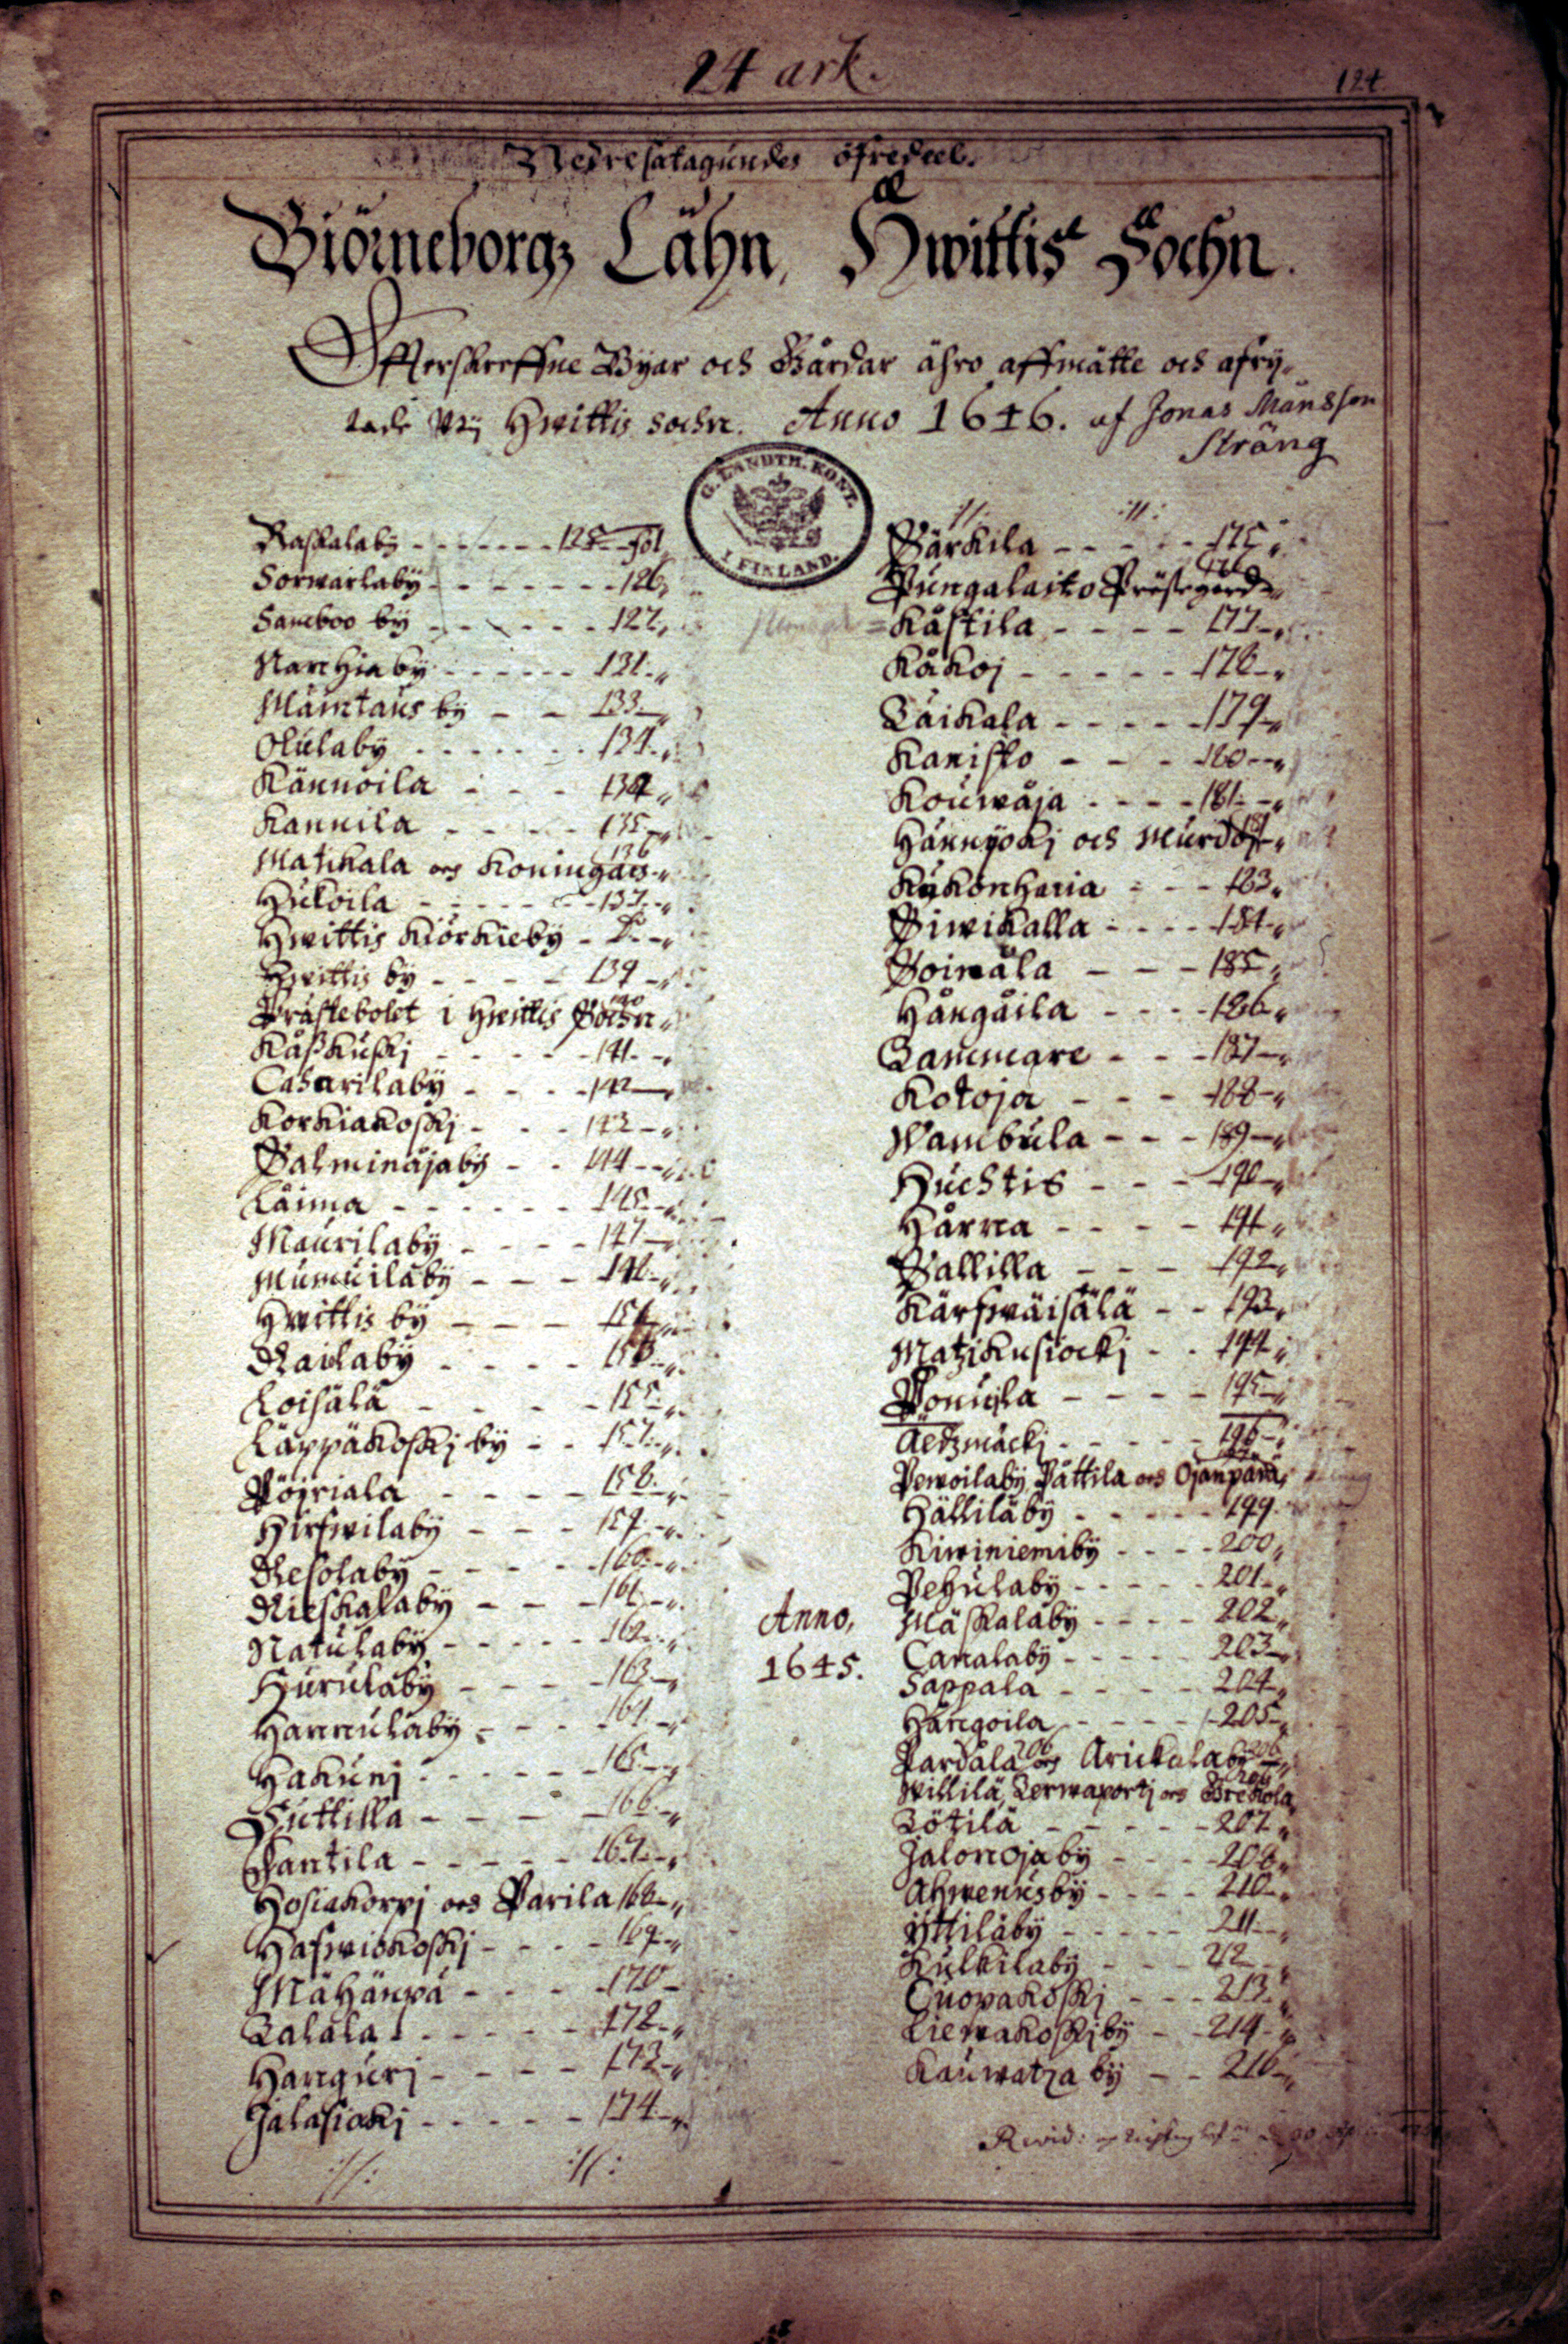 24 ark.
124
Nedresatagundes öfredeel.
Biörneborgz Lähn, Hwittis Sochn.
Effterskreffne Byar och Gårdar ähro affmätte och afry-
tade Vtij Hwittis sochn. Anno 1646. af Jonas Månsson
Sträng
G. LANDTM. KONT. I. FINLAND.
Raskalaby - - - - - - - 125 fol
Sorwarlaby - - - - - - - 126
Samboo by - - - - - - 127
Narchia by - - - - - - 131
Mamtaus by - - 133
Olulaby - - - - - - - 134
Kännöila - - - 134
Kannila - - - - - 135
136
Matikala och Koningais
Hukoila - - - - - - 137
Hwittis Kiörkieby - D
Hwittis by - - - - - 139
140
Prästebolet i Hwittis Sochn
Kåskuskj - - - - - 141
Casarilaby - - - - 142
Korkiakoskj - - - 143
Salminåjaby - - 144
Låima - - - - - - 145
Maurilaby - - - - 147
Mumuilaby - - - 148
Hwittis by - - -
Railaby - - - -
Loisälä - - - - 155
Läppäkoskj by - - 157
Pöjriala - - - - 158
Hirfwilaby - - - 159
Resolaby - - - - 160
Rieskalaby - - - 161
Natulaby - - - - - 162
Hurulaby - - - - 163
Hannulaby - - - 164
Hakunj - - - - - - 165
Suttilla - - - - 166
Pantila - - - - - 167
Hosiakorpj och Parila 168
Hafwiokoskj - - - - 169
Mähänpä - - - - 170
Talala - - - - - 172
Hangurj - - - - 173
Jalasiokj - - - - - 174
:/: :/:
:/: :/:
Särkila - - - - - 175
176
Pungalaito Prästegård
Kåstila - - - - 177
Kåkoj - - - - - 178
Taikala - - - - 179
Kanisto - - - 180
Kouwåja - - - - 181
Hännijokj och Murdo
Kukonharia - - - 183
Siwikalla - - - - 184
Soinala - - - 185
Hångåila - - - - 186
Tammare - - - 187
Kotoja - - - 188
Wambula - - - 189
Huchtis - - - 190
Harna - - - - 191
Sallilla - - - 192
Kärfwäisälä - - 193
Matzikusiockj - - 194
Ponujla - - - - 195
Äetzmäckj - - - - - 196
Pewoilaby, Pättila och Ojanpärä
Hälliläby - - - - - 199
Kiwiniemiby - - - - 200
Pehulaby - - - - - 201
Anno, 1645.
Mäskaläby - - - - 202
Canalaby - - - - - 203
Sappala - - - - - 204
Hangoila - - - - - 205
Pardala 206 och Arickalaby 206
206
Willilä, Terwaportj och Brekola
Tötilä - - - - - 207
Jalonojaby - - - 208
Ahwenusby - - - - 210
Yttiläby - - - - - 211
Kulkilaby - - - - 212
Cuopakoskj - - - 213
Liewakoskjby - - 214
Kauwatza by - - 216
Rewid: